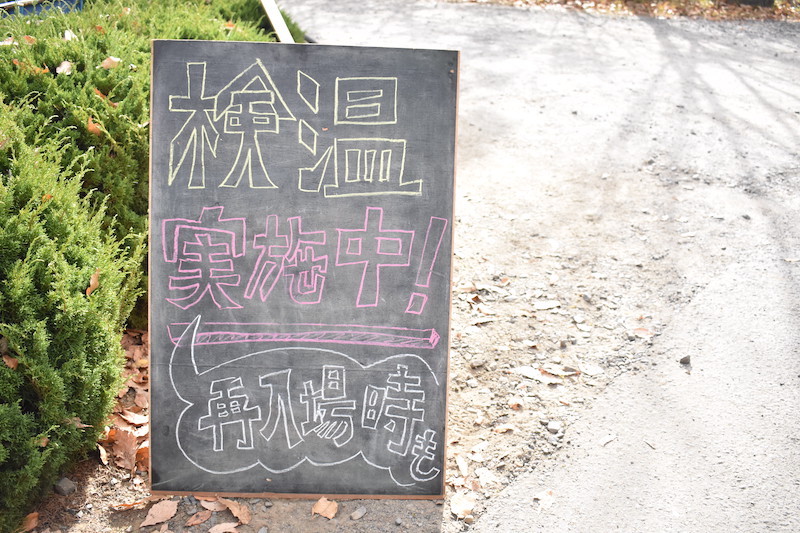 検温
実施中!
再入場時も